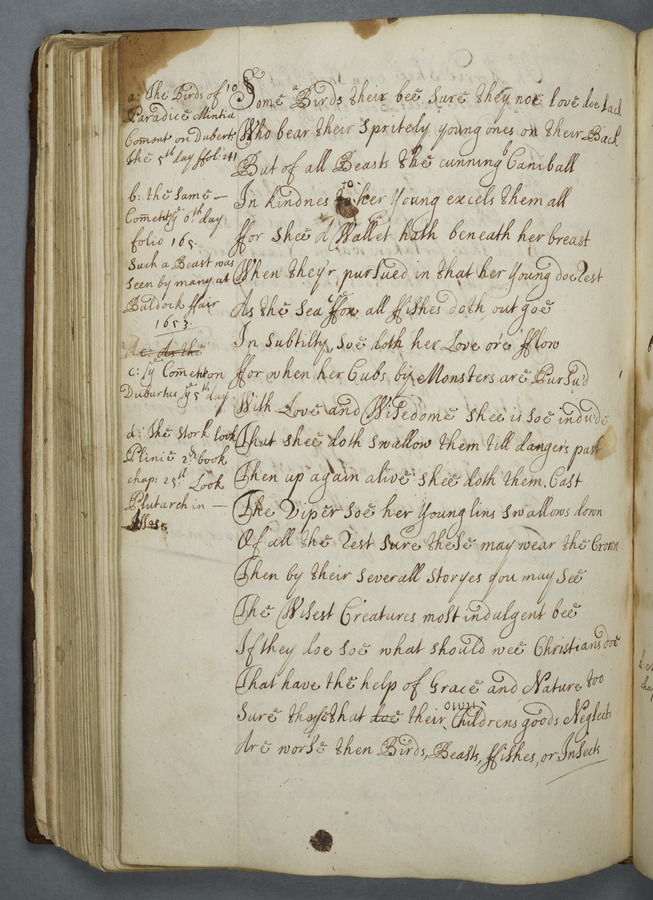 a: The Birds of
Paradice Mintia
Coment on Dubert:
the 5th day ffol: 241
b: the same —
Coment: ye 6th day
folio 165.
Such a Beast was
seen by many at
Baldock ffair
1653
c: As the
c: ye Coment on
Dubartus ye 5th day
d: the Stork look
Plinie 2d book
chap: 25th Look
Plutarch in —
10
Some a Birds their bee sure they not love doe lack
Who bear their spritely young ones on their Back
But of all Beasts the cunning b Caniball
In kindnes to her Young excels them all
ffor shee a Wallet hath beneath her breast
When they'r pursued in that her Young doe rest
As the Sea c ffox all ffishes doth out goe
In subtilty, soe doth her Love o're fflow
ffor when her Cubs by Monsters are Pursu'd
With Love and Wisedome shee is soe indu'd
That shee doth swallow them till dangers past
Then up again alive shee doth them Cast
The Viper soe her Younglins swallows down
Of all the rest sure these may wear the Crown
Then by their severall storyes you may see
The Wisest Creatures most indulgent bee
If they doe soe what should wee Christians doe
That have the help of Grace and Nature too
Sure those that doe their own Childrens goods Neglect
Are worse then Birds, Beasts, ffishes, or Insects